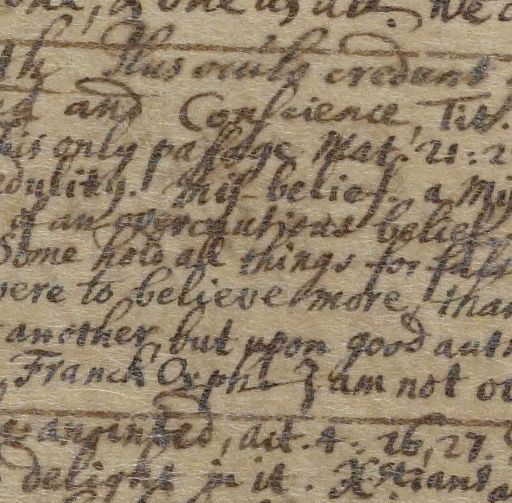 as one
We
Plus oculis credunt
and Conscience, Tit.
his only passage Mat. 21: 2
dulity. Mis-belief. a
an overcautious belief
Some hold all things for fals
were to believe more, than
another, but upon good auth
Franck Orph. I am not ov
anointed, act. 4. 26, 27.
delight in it. Xtians